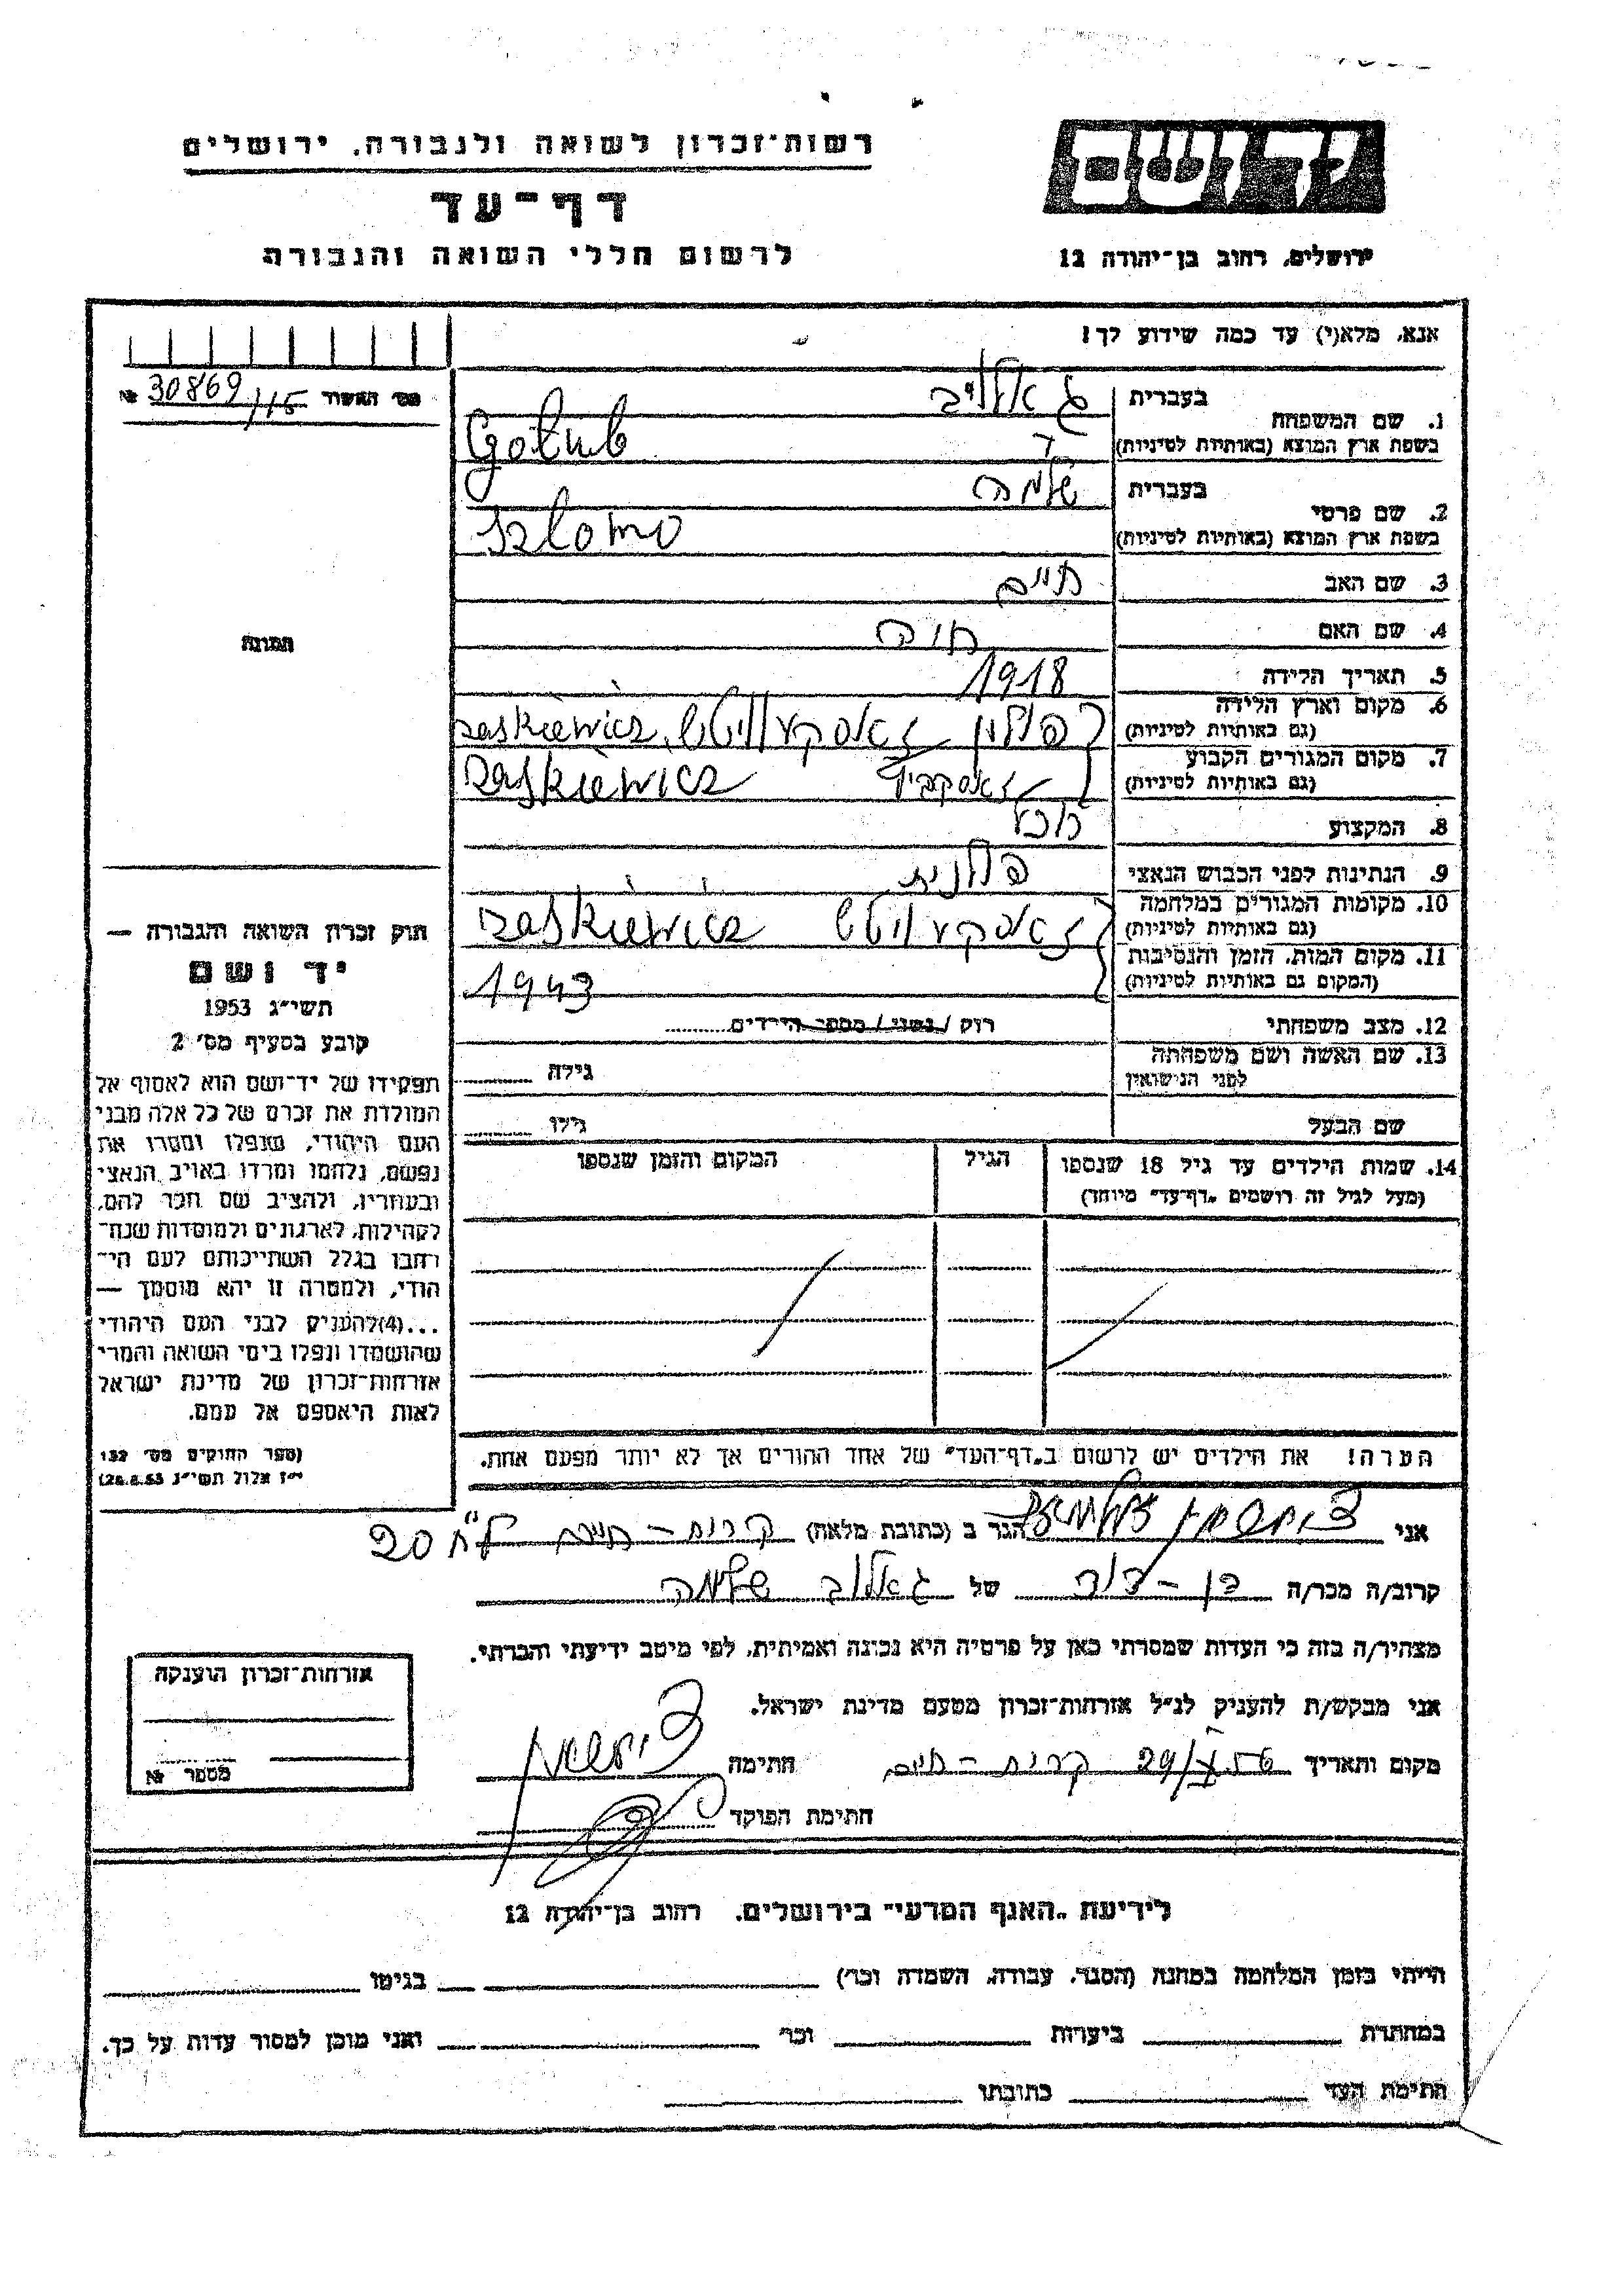 רשות-זכרון לשואה ולגבורה, ירושלים
דף-עד
לרשום חללי השואה והגבורה
יד ושם
ירושלים, רחוב בן-יהודה 12
אנא, מלא(י) עד כמה שידוע לך!
מס' האשור № 30869/115
1. שם המשפחה
בעברית גאלוב
בשפת ארץ המוצא (באותיות לטיניות) Gołub
2. שם פרטי
בעברית שלמה
בשפת ארץ המוצא (באותיות לטיניות) Szlomo
3. שם האב חיים
4. שם האם חיה
5. תאריך הלידה 1918
6. מקום וארץ הלידה
(גם באותיות לטיניות) פולין
7. מקום המגורים הקבוע
(גם באותיות לטיניות)
8. המקצוע
9. הנתינות לפני הכבוש הנאצי פולנית
10. מקומות המגורים במלחמה
(גם באותיות לטיניות)
11. מקום המות, הזמן והנסיבות
(המקום גם באותיות לטיניות) 1943
12. מצב משפחתי רווק / נשוי / מספר הילדים
13. שם האשה ושם משפחתה
לפני הנישואין גילה
שם הבעל גילו
14. שמות הילדים עד גיל 18 שנספו הגיל המקום והזמן שנספו
(מעל לגיל זה רושמים "דף-עד" מיוחד)
הערה! את הילדים יש לרשום ב"דף-העד" של אחד ההורים אך לא יותר מפעם אחת.
תמונה
חוק זכרון השואה והגבורה —
יד ושם
תשי"ג 1953
קובע בסעיף מס' 2
תפקידו של יד-ושם הוא לאסוף אל
המולדת את זכרם של כל אלה מבני
העם היהודי, שנפלו ומסרו את
נפשם, נלחמו ומרדו באויב הנאצי
ובעוזריו, ולהציב שם וזכר להם,
לקהילות, לארגונים ולמוסדות שנח-
רבו בגלל השתייכותם לעם הי-
הודי, ולמטרה זו יהא מוסמך —
...(4)להעניק לבני העם היהודי
שהושמדו ונפלו בימי השואה והמרי
אזרחות-זכרון של מדינת ישראל
לאות היאספם אל עמם.
(ספר החוקים מס' 132
י"ז אלול תשי"ג 28.8.53)
אני הגר ב (כתובת מלאה) קרית-חיים 20
קרוב/ה מכר/ה בן-דוד של גאלוב שלמה
מצהיר/ה בזה כי העדות שמסרתי כאן על פרטיה היא נכונה ואמיתית, לפי מיטב ידיעתי והכרתי.
אני מבקש/ת להעניק לנ"ל אזרחות-זכרון מטעם מדינת ישראל.
מקום ותאריך קרית-חיים חתימה
חתימת הפוקד
אזרחות-זכרון הוענקה
מספר №
לידיעת "האגף המדעי" בירושלים, רחוב בן-יהודה 12
הייתי בזמן המלחמה במחנה (הסגר, עבודה, השמדה וכו') בגיטו
במחתרת ביערות וכו' ואני מוכן למסור עדות על כך.
חתימת העד כתובתו